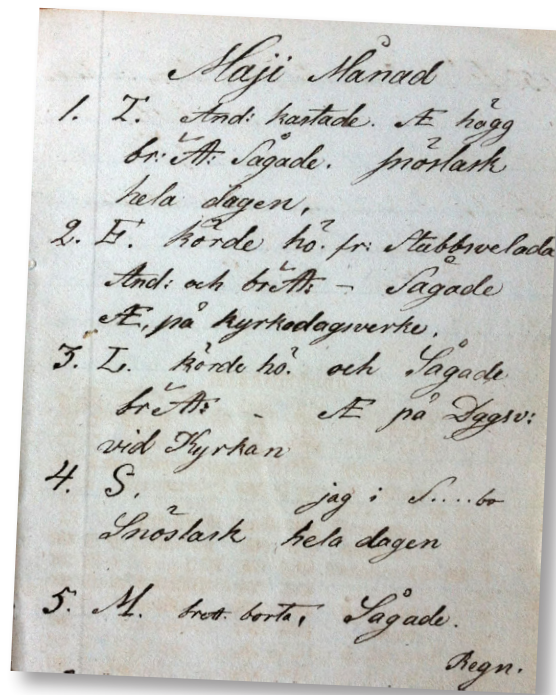 Maji Månad
1. T. And: kastade. Æ högg
br: A: Sågade. Snöslask
hela dagen,
2. F. körde hö. fr: Stubbsvelada
And: och br A: - Sågade
Æ, på kyrkodagsverke.
3. L. körde hö. och Sågade
br A: - Æ på Dggsv:
vid Kyrkan
4. S. jag i S....bo
Snöslask hela dagen
5. M. brott. borta, Sågade.
Regn.